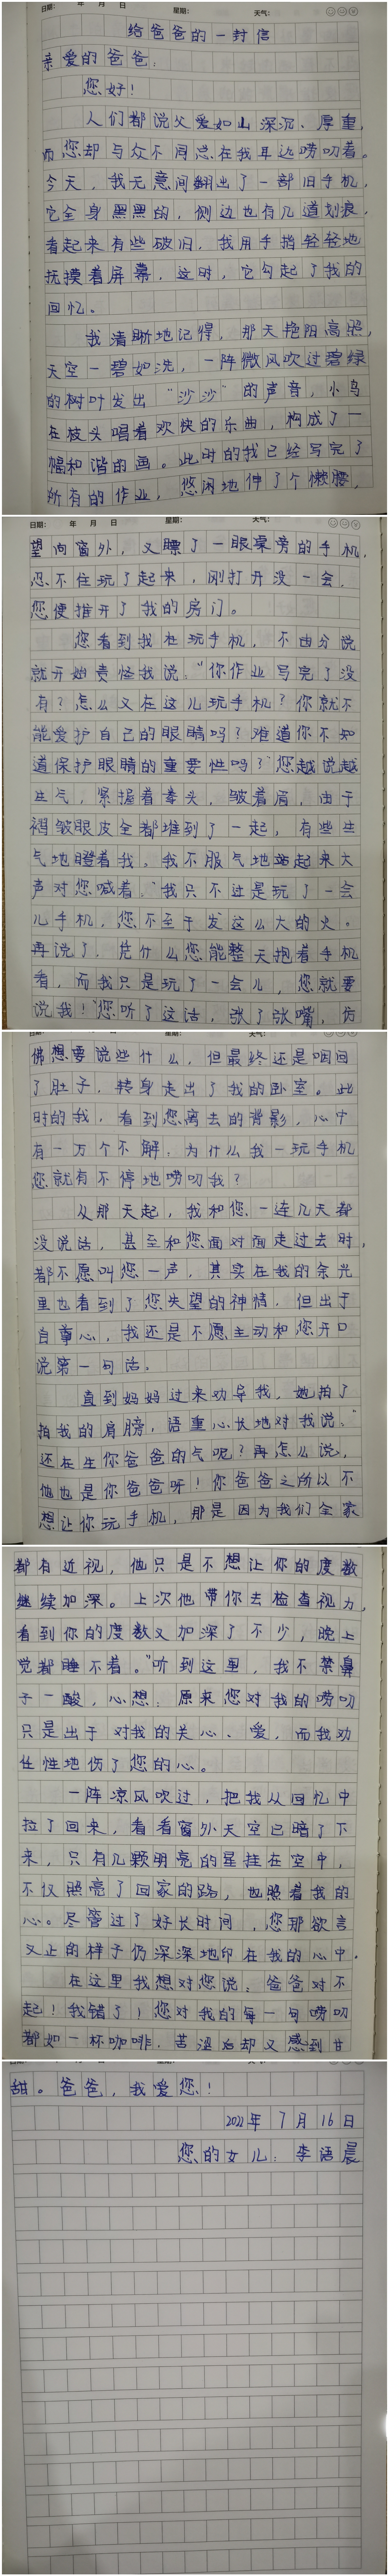 日期: 年 月 日 星期: 天气:
给爸爸的一封信
亲爱的爸爸:
您好!
人们都说父爱如山深沉、厚重,
而您却与众不同总在我耳边唠叨着。
今天,我无意间翻出了一部旧手机,
它全身黑黑的,侧边也有几道划痕,
看起来有些破旧,我用手指轻轻地
抚摸着屏幕,这时,它勾起了我的
回忆。
我清晰地记得,那天艳阳高照,
天空一碧如洗,一阵微风吹过碧绿
的树叶发出“沙沙”的声音,小鸟
在枝头唱着欢快的乐曲,构成了一
幅和谐的画。此时的我已经写完了
所有的作业,悠闲地伸了个懒腰,
日期: 年 月 日 星期: 天气:
望向窗外,又瞟了一眼桌旁的手机,
忍不住玩了起来,刚打开没一会,
您便推开了我的房门。
您看到我在玩手机,不由分说
就开始责怪我说:“你作业写完了没
有?怎么又在这儿玩手机?你就不
能爱护自己的眼睛吗?难道你不知
道保护眼睛的重要性吗?”您越说越
生气,紧握着拳头,皱着眉,由于
褶皱眼皮全都堆到了一起,有些生
气地瞪着我,我不服气地站起来大
声对您喊着:“我只不过是玩了一会
儿手机,您不至于发这么大的火。
再说了,凭什么您能整天抱着手机
看,而我只是玩了一会儿,您就要
说我!”您听了这话,张了张嘴,仿
日期: 年 月 日 星期: 天气:
佛想要说些什么,但最终还是咽回
了肚子,转身走出了我的卧室。此
时的我,看到您离去的背影,心中
有一万个不解:为什么我一玩手机
您就有不停地唠叨我?
从那天起,我和您一连几天都
没说话,甚至和您面对面走过去时,
都不愿叫您一声,其实在我的余光
里也看到了您失望的神情,但出于
自尊心,我还是不愿主动和您开口
说第一句话。
直到妈妈过来劝导我,她拍了
拍我的肩膀,语重心长地对我说:“
还在生你爸爸的气呢?再怎么说,
他也是你爸爸呀!你爸爸之所以不
想让你玩手机,那是因为我们全家
都有近视,他只是不想让你的度数
继续加深。上次他带你去检查视力,
看到你的度数又加深了不少,晚上
觉都睡不着。”听到这里,我不禁鼻
子一酸,心想:原来您对我的唠叨
只是出于对我的关心、爱,而我劝
任性地伤了您的心。
一阵凉风吹过,把我从回忆中
拉了回来,看看窗外天空已暗了下
来,只有几颗明亮的星挂在空中,
不仅照亮了回家的路,也照着我的
心。尽管过了好长时间,您那欲言
又止的样子仍深深地印在我的心中。
在这里我想对您说:爸爸对不
起!我错了!您对我的每一句唠叨
都如一杯咖啡,苦涩后却又感到甘
甜。爸爸,我爱您!
2022年7月16日
您的女儿:李语晨